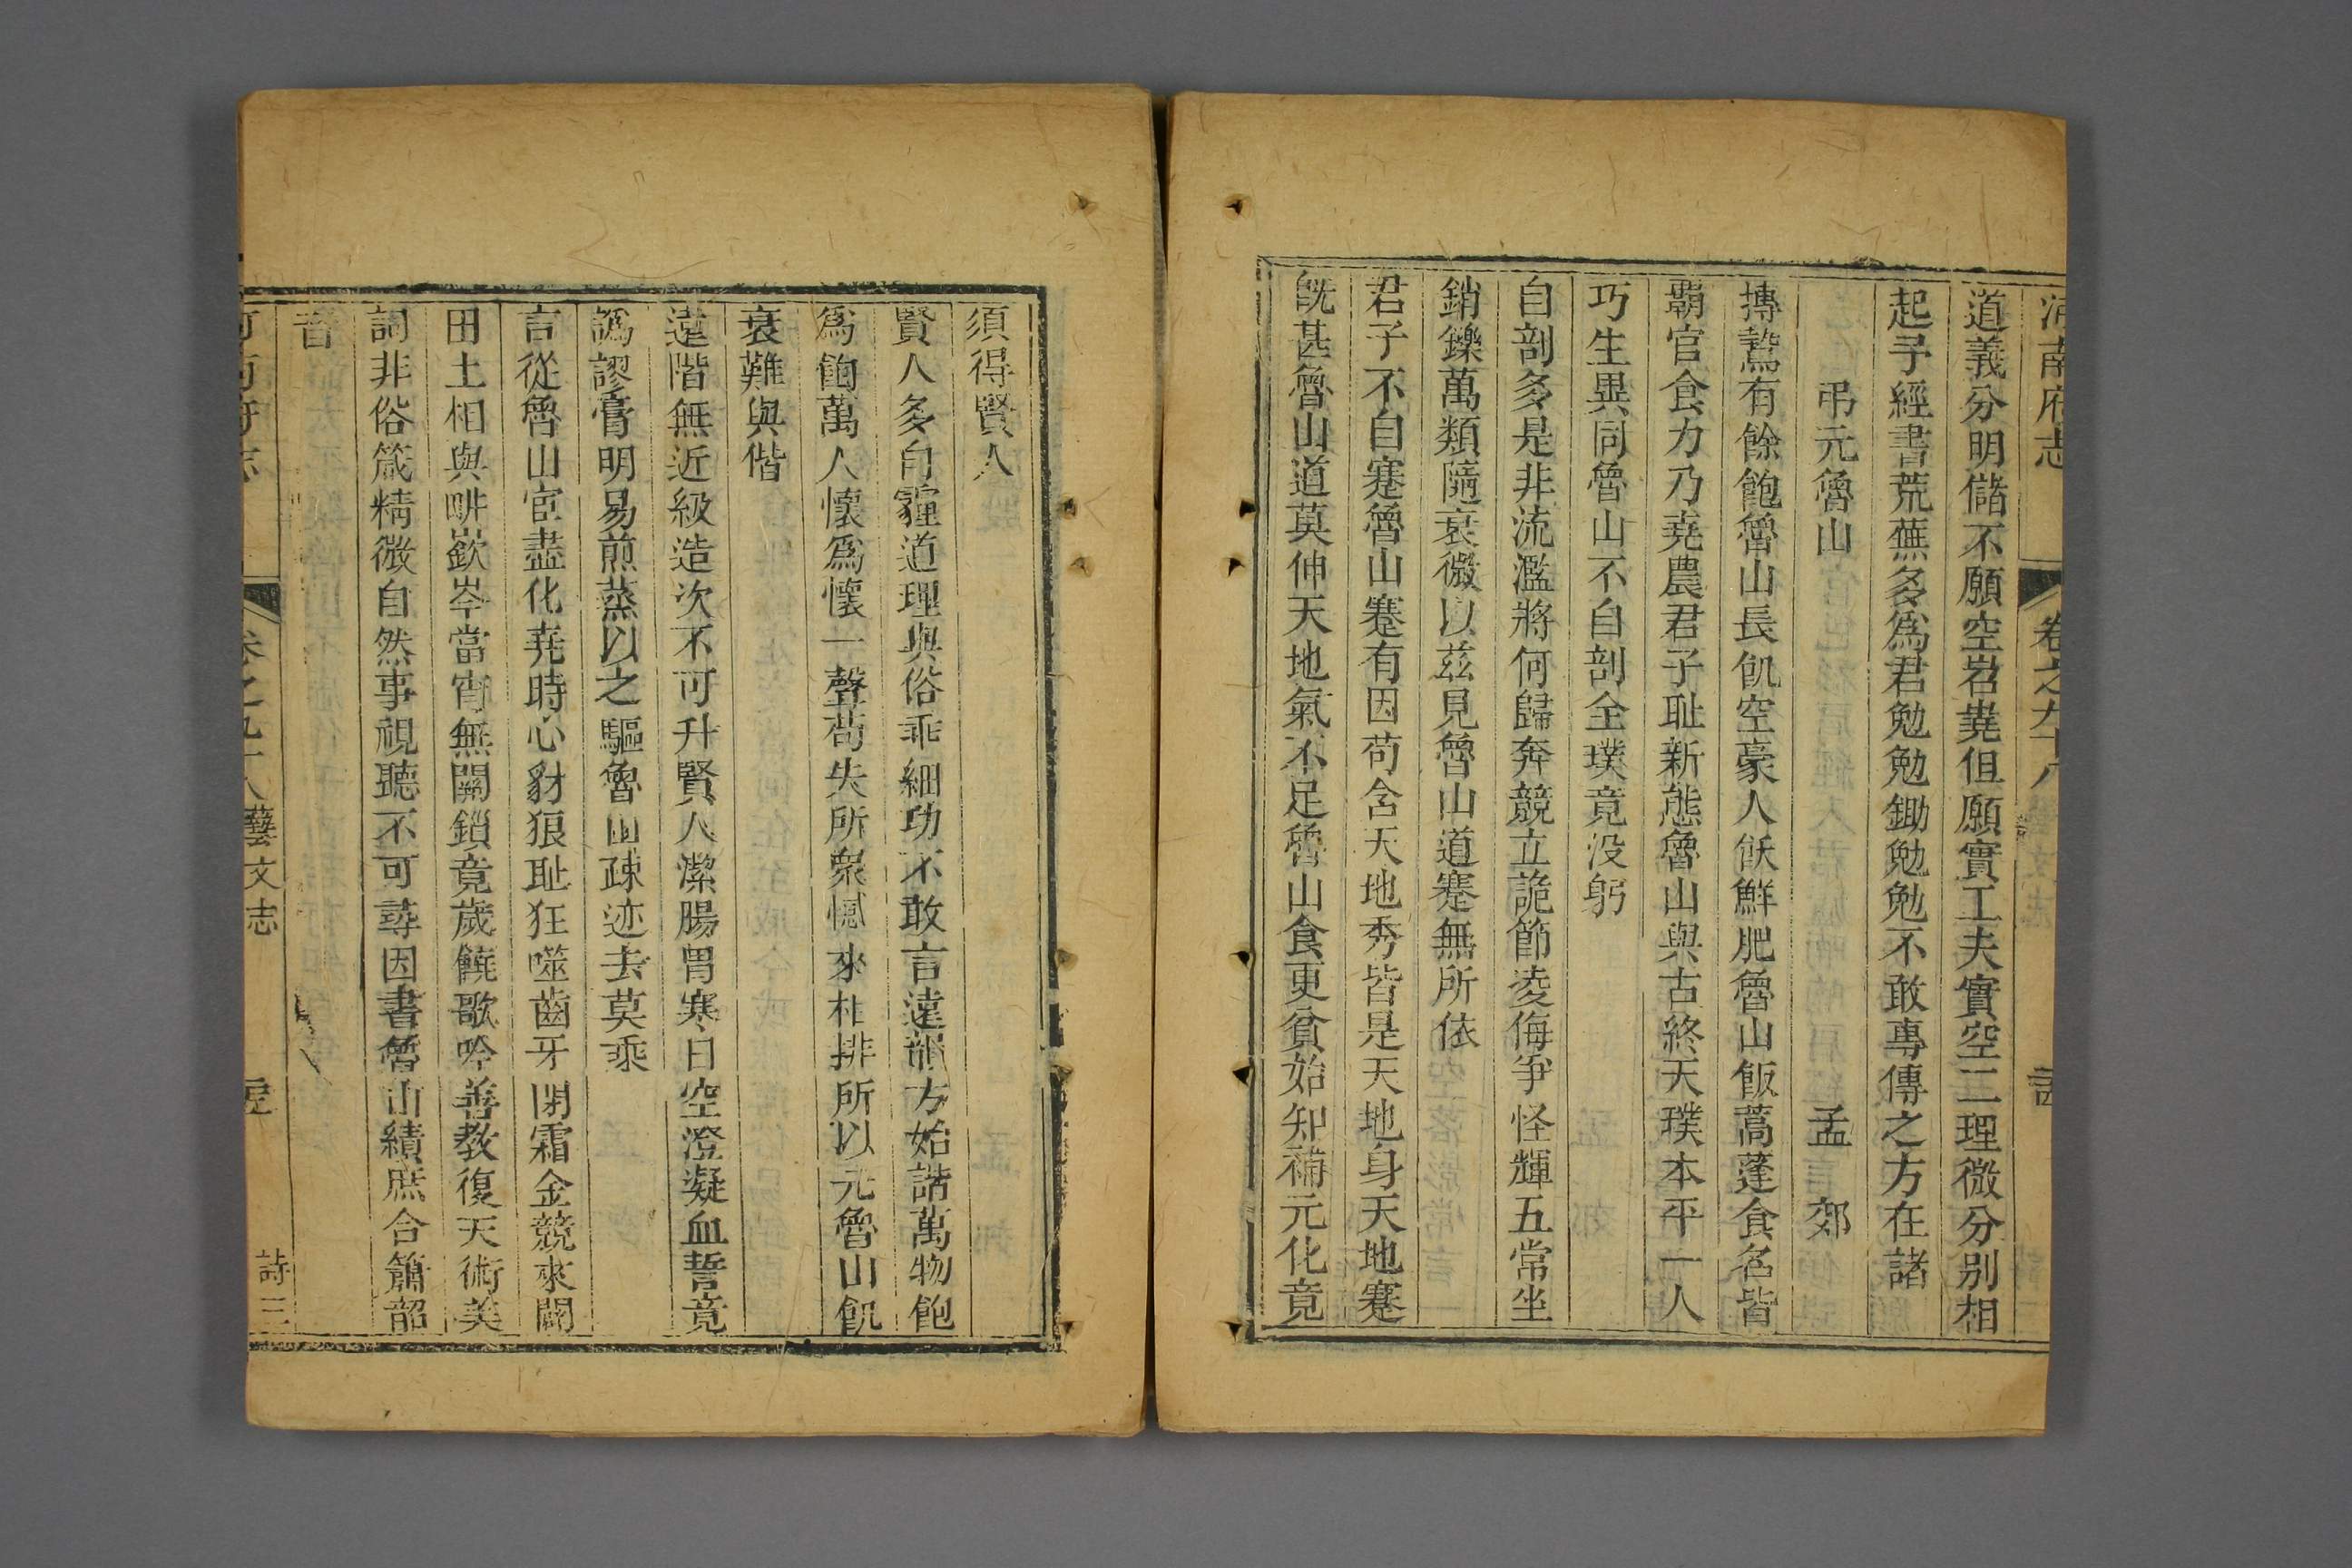 河南府志 卷之九十八
道義分明儲不願空岧嶤但願實工夫實空二理微分别相
起予經書荒蕪多爲君勉勉鋤勉勉不敢專傳之方在諸
弔元魯山 孟郊
摶鷙有餘飽魯山長飢空豪人飫鮮肥魯山飯蒿蓬食名皆
霸官食力乃堯農君子耻新態魯山與古終天璞本平一人
巧生異同魯山不自剖全璞竟没躬
自剖多是非流濫將何歸奔競立詭節凌侮爭怪輝五常坐
銷鑠萬類隨衰微以兹見魯山道蹇無所依
君子不自蹇魯山蹇有因苟含天地秀皆是天地身天地蹇
旣甚魯山道莫伸天地氣不足魯山食更貧始知補元化竟
須得賢人
賢人多自霾道理與俗乖細功不敢言遠韻方始諧萬物飽
爲飽萬人懷爲懷一聲苟失所衆憾來相排所以元魯山飢
衰難與偕
遠階無近級造次不可升賢人潔腸胃寒日空澄凝血誓竟
譌謬膏明易煎蒸以之驅魯山疎迹去莫乘
言從魯山宦盡化堯時心豺狼耻狂噬齒牙閉霜金競來闢
田土相與畊嶔岑當宵無關鎖竟歲饒歌吟善敎復天術美
詞非俗箴精微自然事視聽不可尋因書魯山績庶合簫韶
音
河南府志 卷之九十八 藝文志 詩三